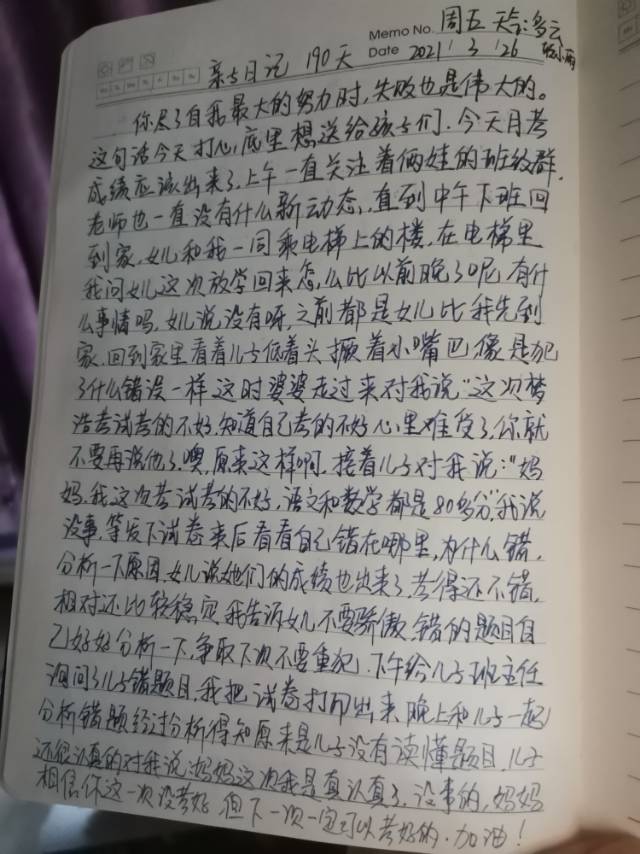 周五 天气:多云
Memo No.
亲子日记 190天 Date 2021 / 3 / 26
你尽了自我最大的努力时,失败也是伟大的。
这句话今天打心底里想送给孩子们.今天月考
成绩应该出来了.上午一直关注着俩娃的班级群.
老师也一直没有什么新动态,直到中午下班回
到家.女儿和我一同乘电梯上的楼.在电梯里
我问女儿这次放学回来怎么比以前晚了呢 有什
么事情吗.女儿说没有呀.之前都是女儿比我先到
家.回到家里看着儿子低着头撅着小嘴巴像是犯
了什么错误一样 这时婆婆走过来对我说“这次梦
浩考试考的不好.知道自己考的不好心里难受了.你就
不要再说他了.噢,原来这样啊.接着儿子对我说:“妈
妈.我这次考试考的不好,语文和数学都是80多分”.我说
没事.等发下试卷来后看看自己错在哪里,为什么错.
分析一下原因.女儿说她们的成绩也出来了.考得还不错.
相对还比较稳定.我告诉女儿不要骄傲.错的题目自
己好好分析一下,争取下次不要重犯.下午给儿子班主任
询问了儿子错题目.我把试卷打印出来.晚上和儿子一起
分析错题经过分析得知原来是儿子没有读懂题目.儿子
还很认真的对我说:妈妈这次我是真认真了.没事的,妈妈
相信你这一次没考好 但下一次一定可以考好的.加油!